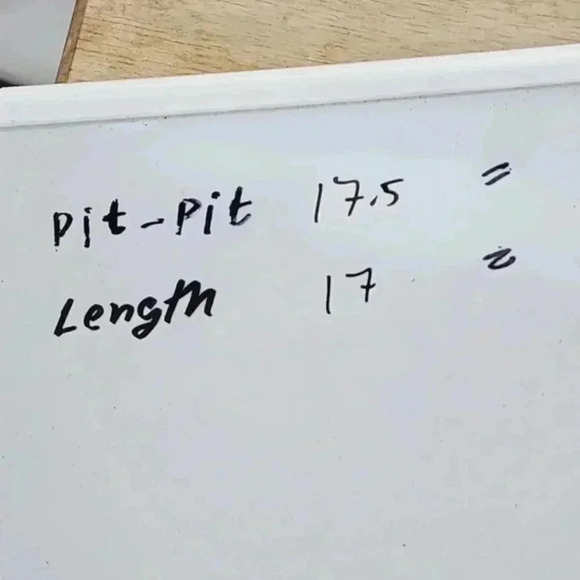 Pit-Pit 17.5 "
Length 17 "